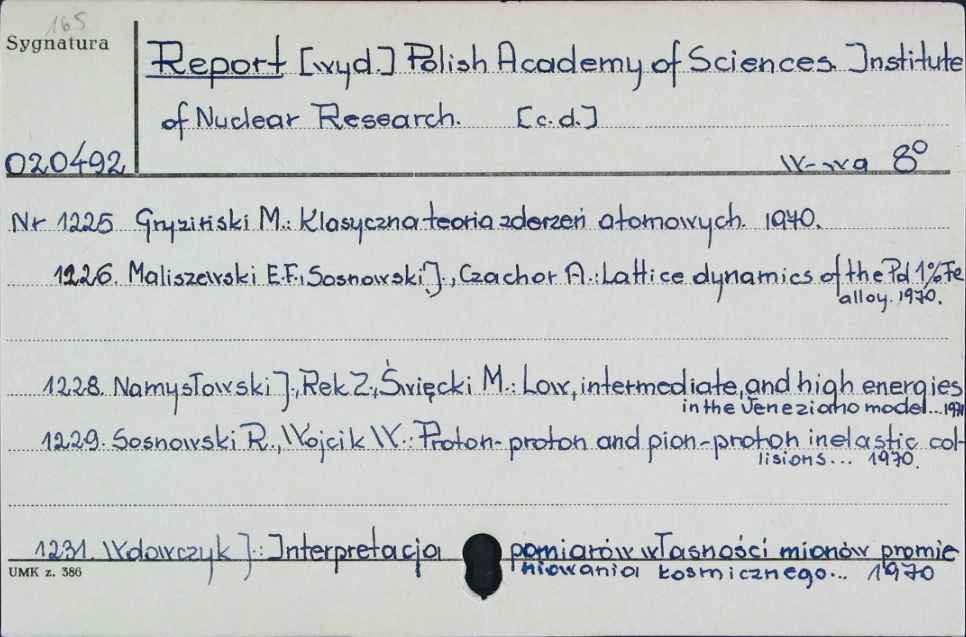 165
Sygnatura
Report [wyd.] Polish Academy of Sciences. Institute
of Nuclear Research. [c.d.]
020492
W-wa 8°
Nr 1225 Gryziński M.: Klasyczna teoria zderzeń atomowych. 1970.
1226. Maliszewski E.F., Sosnowski J., Czachor A.: Lattice dynamics of the Pd 1% Fe
alloy. 1970.
1228. Namysłowski J., Rek Z., Święcki M.: Low, intermediate, and high energies
in the Veneziano model... 1970
1229. Sosnowski R., Wojcik W.: Proton-proton and pion-proton inelastic col-
lisions... 1970.
1231. Wdowczyk J.: Interpretacja pomiarów własności mionów promie
niowania kosmicznego... 1970
UMK z. 386